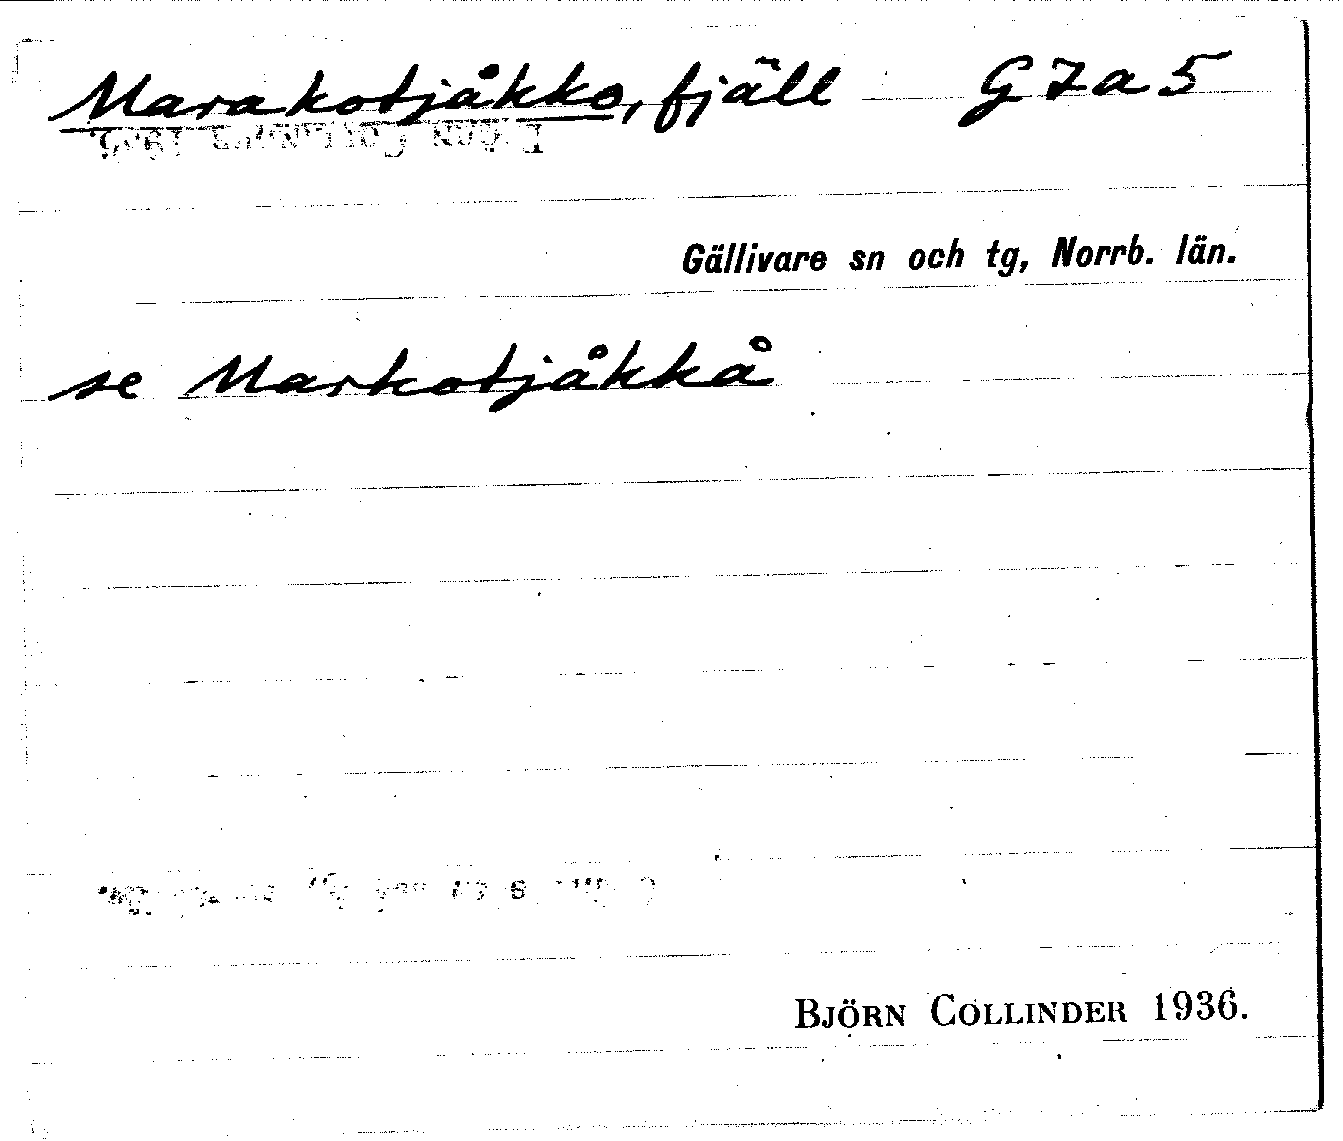 Marakotjåkko, fjäll G7a5
Gällivare sn och tg, Norrb. län.
se Markotjåkkå
BJÖRN COLLINDER 1936.